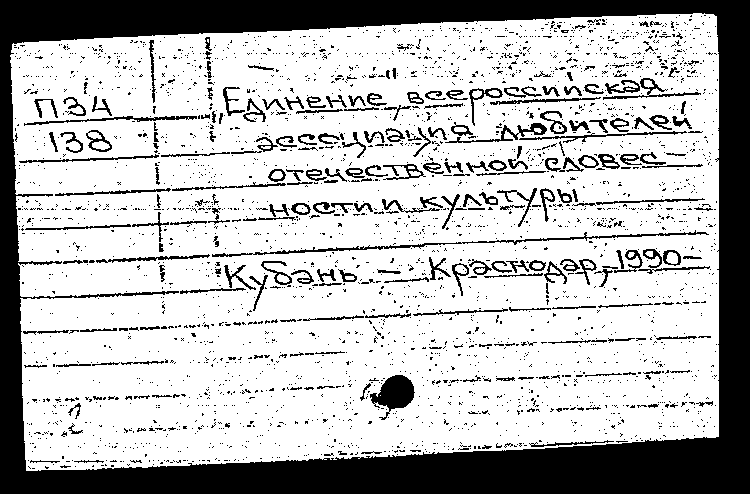 П34
138
„Единение", всероссийская
ассоциация любителей
отечественной словес-
ности и культуры
Кубань – Краснодар, 1990–
2